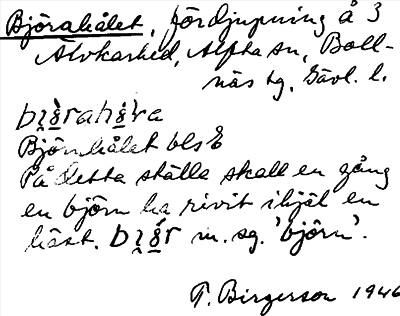 Björahålet, fördjupning å 3
Älvkarhed, Alfta sn, Boll-
näs tg, Gävl. l.
Björnhålet bls
På detta ställe skall en gång
en björn ha rivit ihjäl en
häst. m. sg. 'björn'.
T. Birgerson 1946